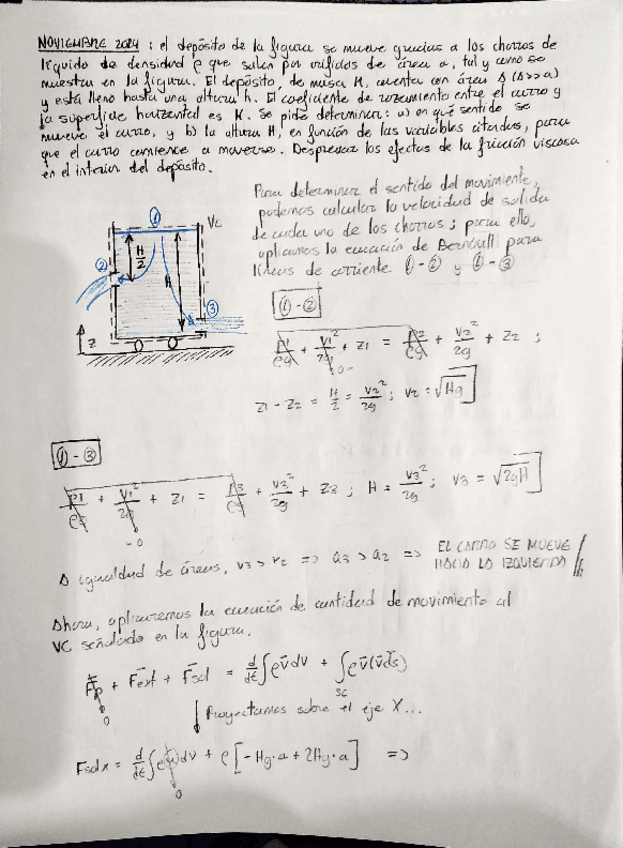 NOVIEMBRE 2024 : el depósito de la figura se mueve gracias a los chorros de
líquido de densidad ρ que salen por orificios de área a, tal y como se
muestra en la figura. El depósito, de masa M, cuenta con área A (A>>a)
y está lleno hasta una altura h. El coeficiente de rozamiento entre el carro y
la superficie horizontal es K. Se pide determinar: a) en qué sentido se
mueve el carro, y b) la altura H, en función de las variables citadas, para
que el carro comience a moverse. Despreciar los efectos de la fricción viscosa
en el interior del depósito.
Para determinar el sentido del movimiento,
podemos calcular la velocidad de salida
de cada uno de los chorros; para ello,
aplicamos la ecuación de Bernoulli para
líneas de corriente ①-② y ①-③
① VC
② H/2
H
③
z
①-②
P1/ρg + V1²/2g + z1 = P2/ρg + V2²/2g + z2 ;
~0
z1 - z2 = H/2 = V2²/2g ; V2 = √Hg
①-③
P1/ρg + V1²/2g + z1 = P3/ρg + V3²/2g + z3 ; H = V3²/2g ; V3 = √2gH
~0
A igualdad de áreas, V3 > V2 => Q3 > Q2 => EL CARRO SE MUEVE
HACIA LA IZQUIERDA
Ahora, aplicaremos la ecuación de cantidad de movimiento al
VC señalado en la figura.
Fp + Fext + Fsol = d/dt ∫ρv̄dv + ∫ρv̄(v̄ds̄)
0 SC
Proyectamos sobre el eje X...
Fsolx = d/dt ∫ρ dv + ρ[-Hg·a + 2Hg·a] =>
0